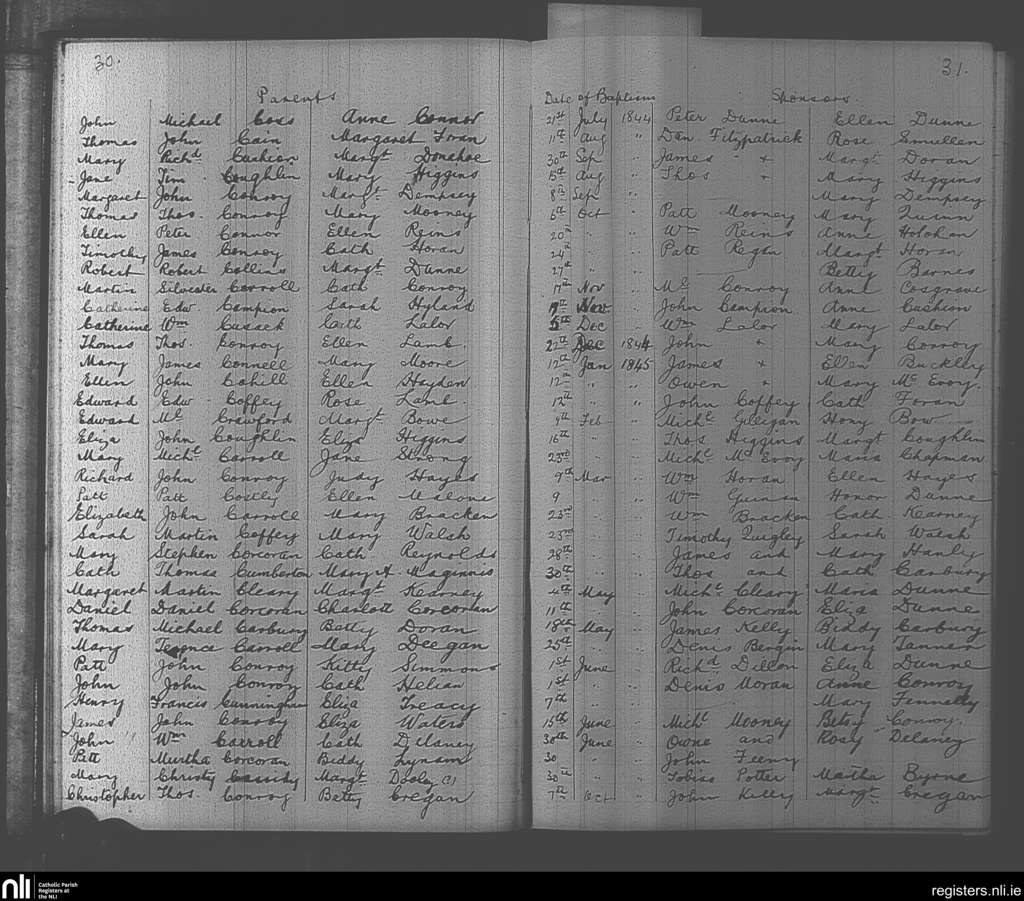 30. 31.
Parents Date of Baptism Sponsors
John Michael Coss Anne Connor 21st July 1844 Peter Dunne Ellen Dunne
Thomas John Cain Margaret Foran 11th Aug " Dan Fitzpatrick Rose Smullen
Mary Richd Cushion Margt Donahoe 30th Sep " James " + Margt Doran
Jane Tim Coughlin Mary Higgins 15th Aug " Thos + Mary Higgins
Margaret John Conroy Margt Dempsey 8th Sep " Mary Dempsey
Thomas Thos. Conroy Mary Mooney 6th Oct " Patt Mooney Mary Quinn
Ellen Peter Connor Ellen Reins 20th " " Wm Reins Anne Holohan
Timothy James Conroy Cath Horan 24th " " Patt Regan Margt Horan
Robert Robert Collins Margt Dunne 27th " " Betty Barnes
Martin Silvester Carroll Cath Conroy 17th Nov " Ml Conroy Anne Cosgrave
Catherine Edw. Campion Sarah Hyland Nov " John Campion Anne Cushion
Catherine Wm Cusack Cath Lalor 5th Dec " Wm Lalor Mary Lalor
Thomas Thos. Conroy Ellen Lamb. 22th Dec 1844 John + Mary Conroy
Mary James Connell Mary Moore 12th Jan 1845 James + Ellen Buckley
Ellen John Cahill Ellen Hayden 12th " " Owen + Mary Mc Evoy.
Edward Edw Coffey Rose Lamb. 12th " " John Coffey Cath Foran
Edward Ml Crawford Margt Bowe 9th Feb " Michl Gilligan Hony Bow
Eliza John Coughlin Eliza Higgins 16th " " Thos Higgins Margt Coughlin
Mary Michl Carroll Jane Strong 23rd " " Michl Mc Evoy Maria Chapman
Richard John Conroy Judy Hayes 9th Mar " Wm Horan Ellen Hayes
Patt Patt Costly Ellen Malone 9 " " Wm Honor Dunne
Elizabeth John Carroll Mary Bracken 23rd " " Wm Bracken Cath Kearney
Sarah Martin Coffey Mary Walsh 23rd " " Timothy Quigley Sarah Walsh
Mary Stephen Corcoran Cath Reynolds 28th " " James and Mary Hanly
Cath Thomas Cumberton Mary A Maginnis 30th " " Thos and Cath Carbury
Margaret Martin Cleary Margt Kearney 4th May " Michl Cleary Maria Dunne
Daniel Daniel Corcoran Charlott Corcoran 11th " " John Corcoran Eliza Dunne
Thomas Michael Carbury Betty Doran 18th May " James Kelly Biddy Carbury
Mary Terence Carroll Mary Deegan 25th " " Denis Bergin Mary Tanner
Patt John Conroy Kitty Simmons 1st June " Richd Dillon Eliza Dunne
John John Conroy Cath Helian 1st " " Denis Moran Anne Conroy
Henry Francis Cunningham Eliza Treacy 7th " " Mary Finnelly
James John Conroy Eliza Waters 15th June " Michl Mooney Betsy Conroy.
John Wm Carroll Cath Delaney 30th June " Owne and Rosy Delaney
Patt Murtha Corcoran Biddy Lynam 30 " " John Feeny
Mary Christy Cassidy Margt Dooly 30th " " Tobias Potter Martha Byrne
Christopher Thos. Conroy Betty Cregan 7th Oct " John Kelly Margt Cregan
nli Catholic Parish Registers at the NLI registers.nli.ie